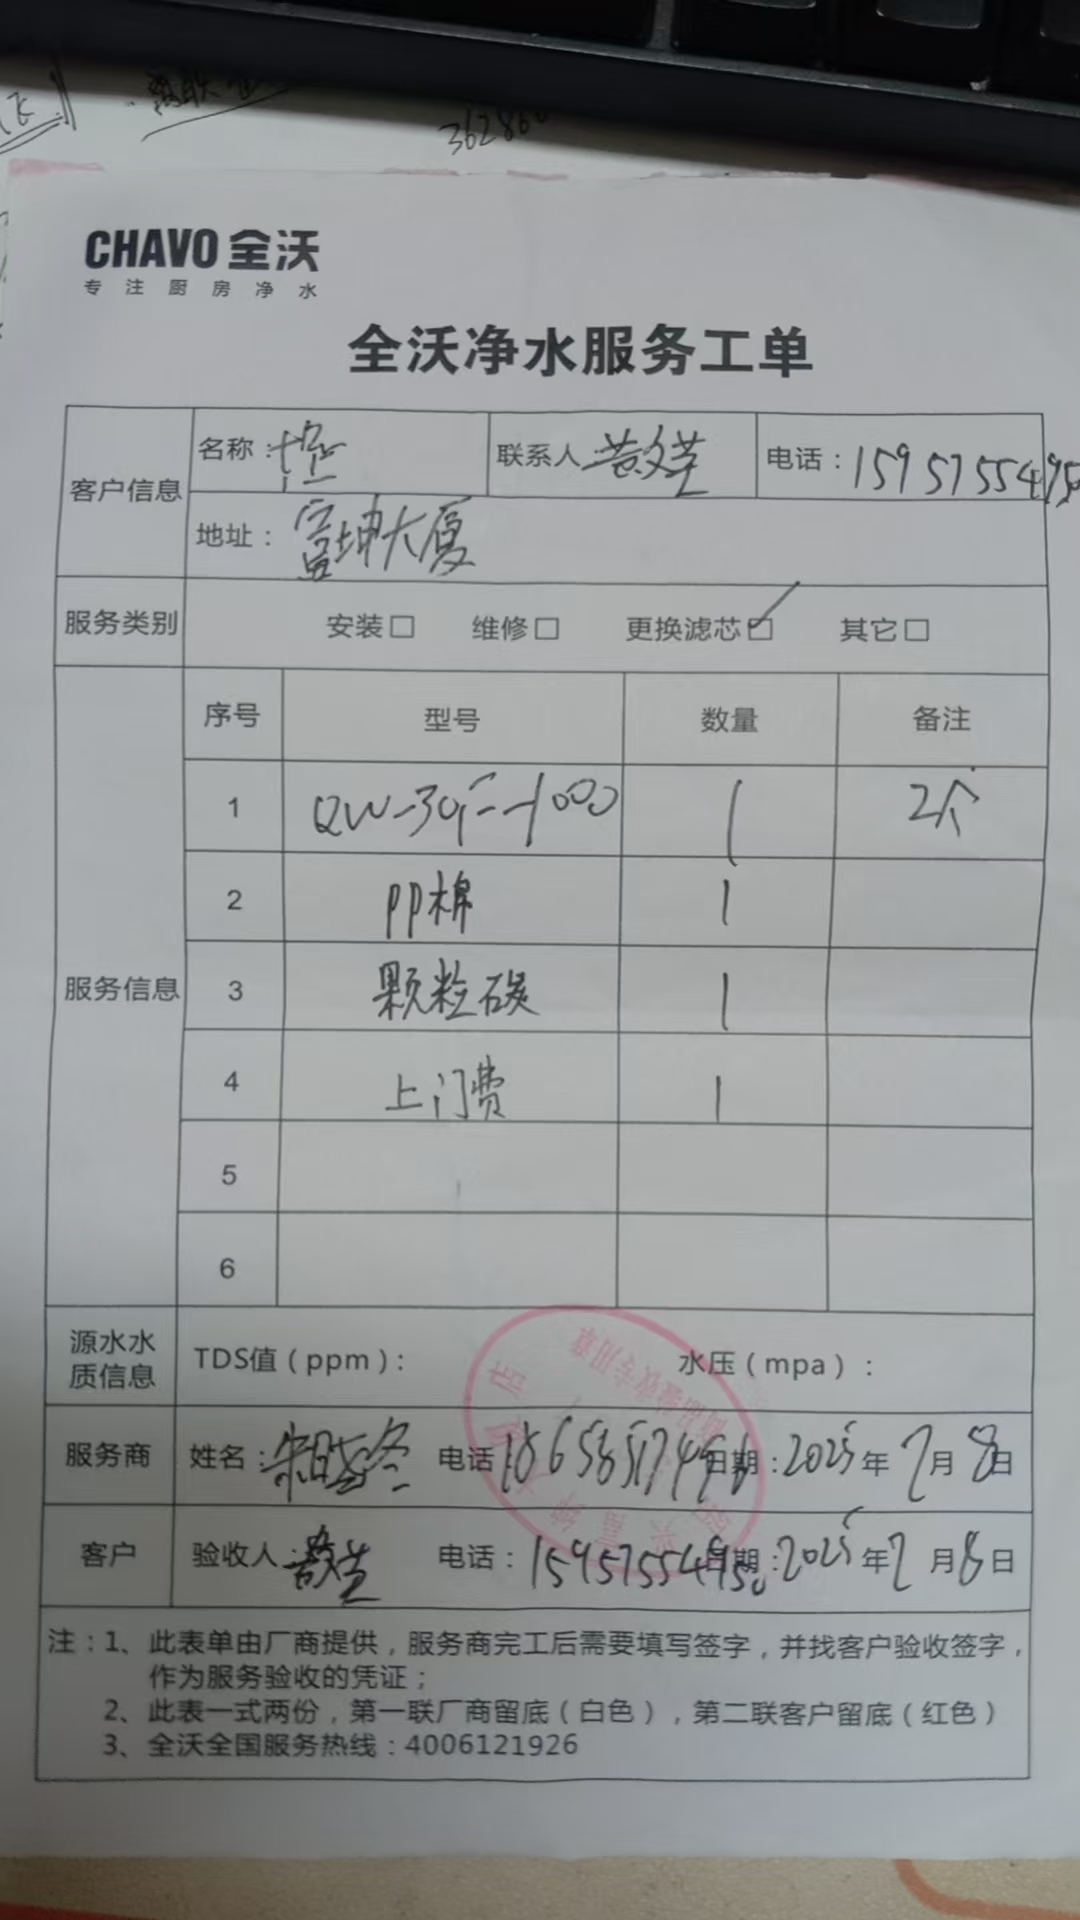 362866
CHAVO 全沃
专注厨房净水
全沃净水服务工单
客户信息 名称: 联系人 黄文芳 电话: 15957554950
地址: 富坤大厦
服务类别 安装□ 维修□ 更换滤芯☑ 其它□
服务信息 序号 型号 数量 备注
1 1 2个
2 PP棉 1
3 颗粒碳 1
4 上门费 1
5
6
源水水质信息 TDS值(ppm): 水压(mpa):
服务商 姓名: 电话 日期: 2025年7月8日
客户 验收人: 电话: 15957554950 日期: 2025年7月8日
注:1、此表单由厂商提供,服务商完工后需要填写签字,并找客户验收签字,
作为服务验收的凭证;
2、此表一式两份,第一联厂商留底(白色),第二联客户留底(红色)
3、全沃全国服务热线:4006121926